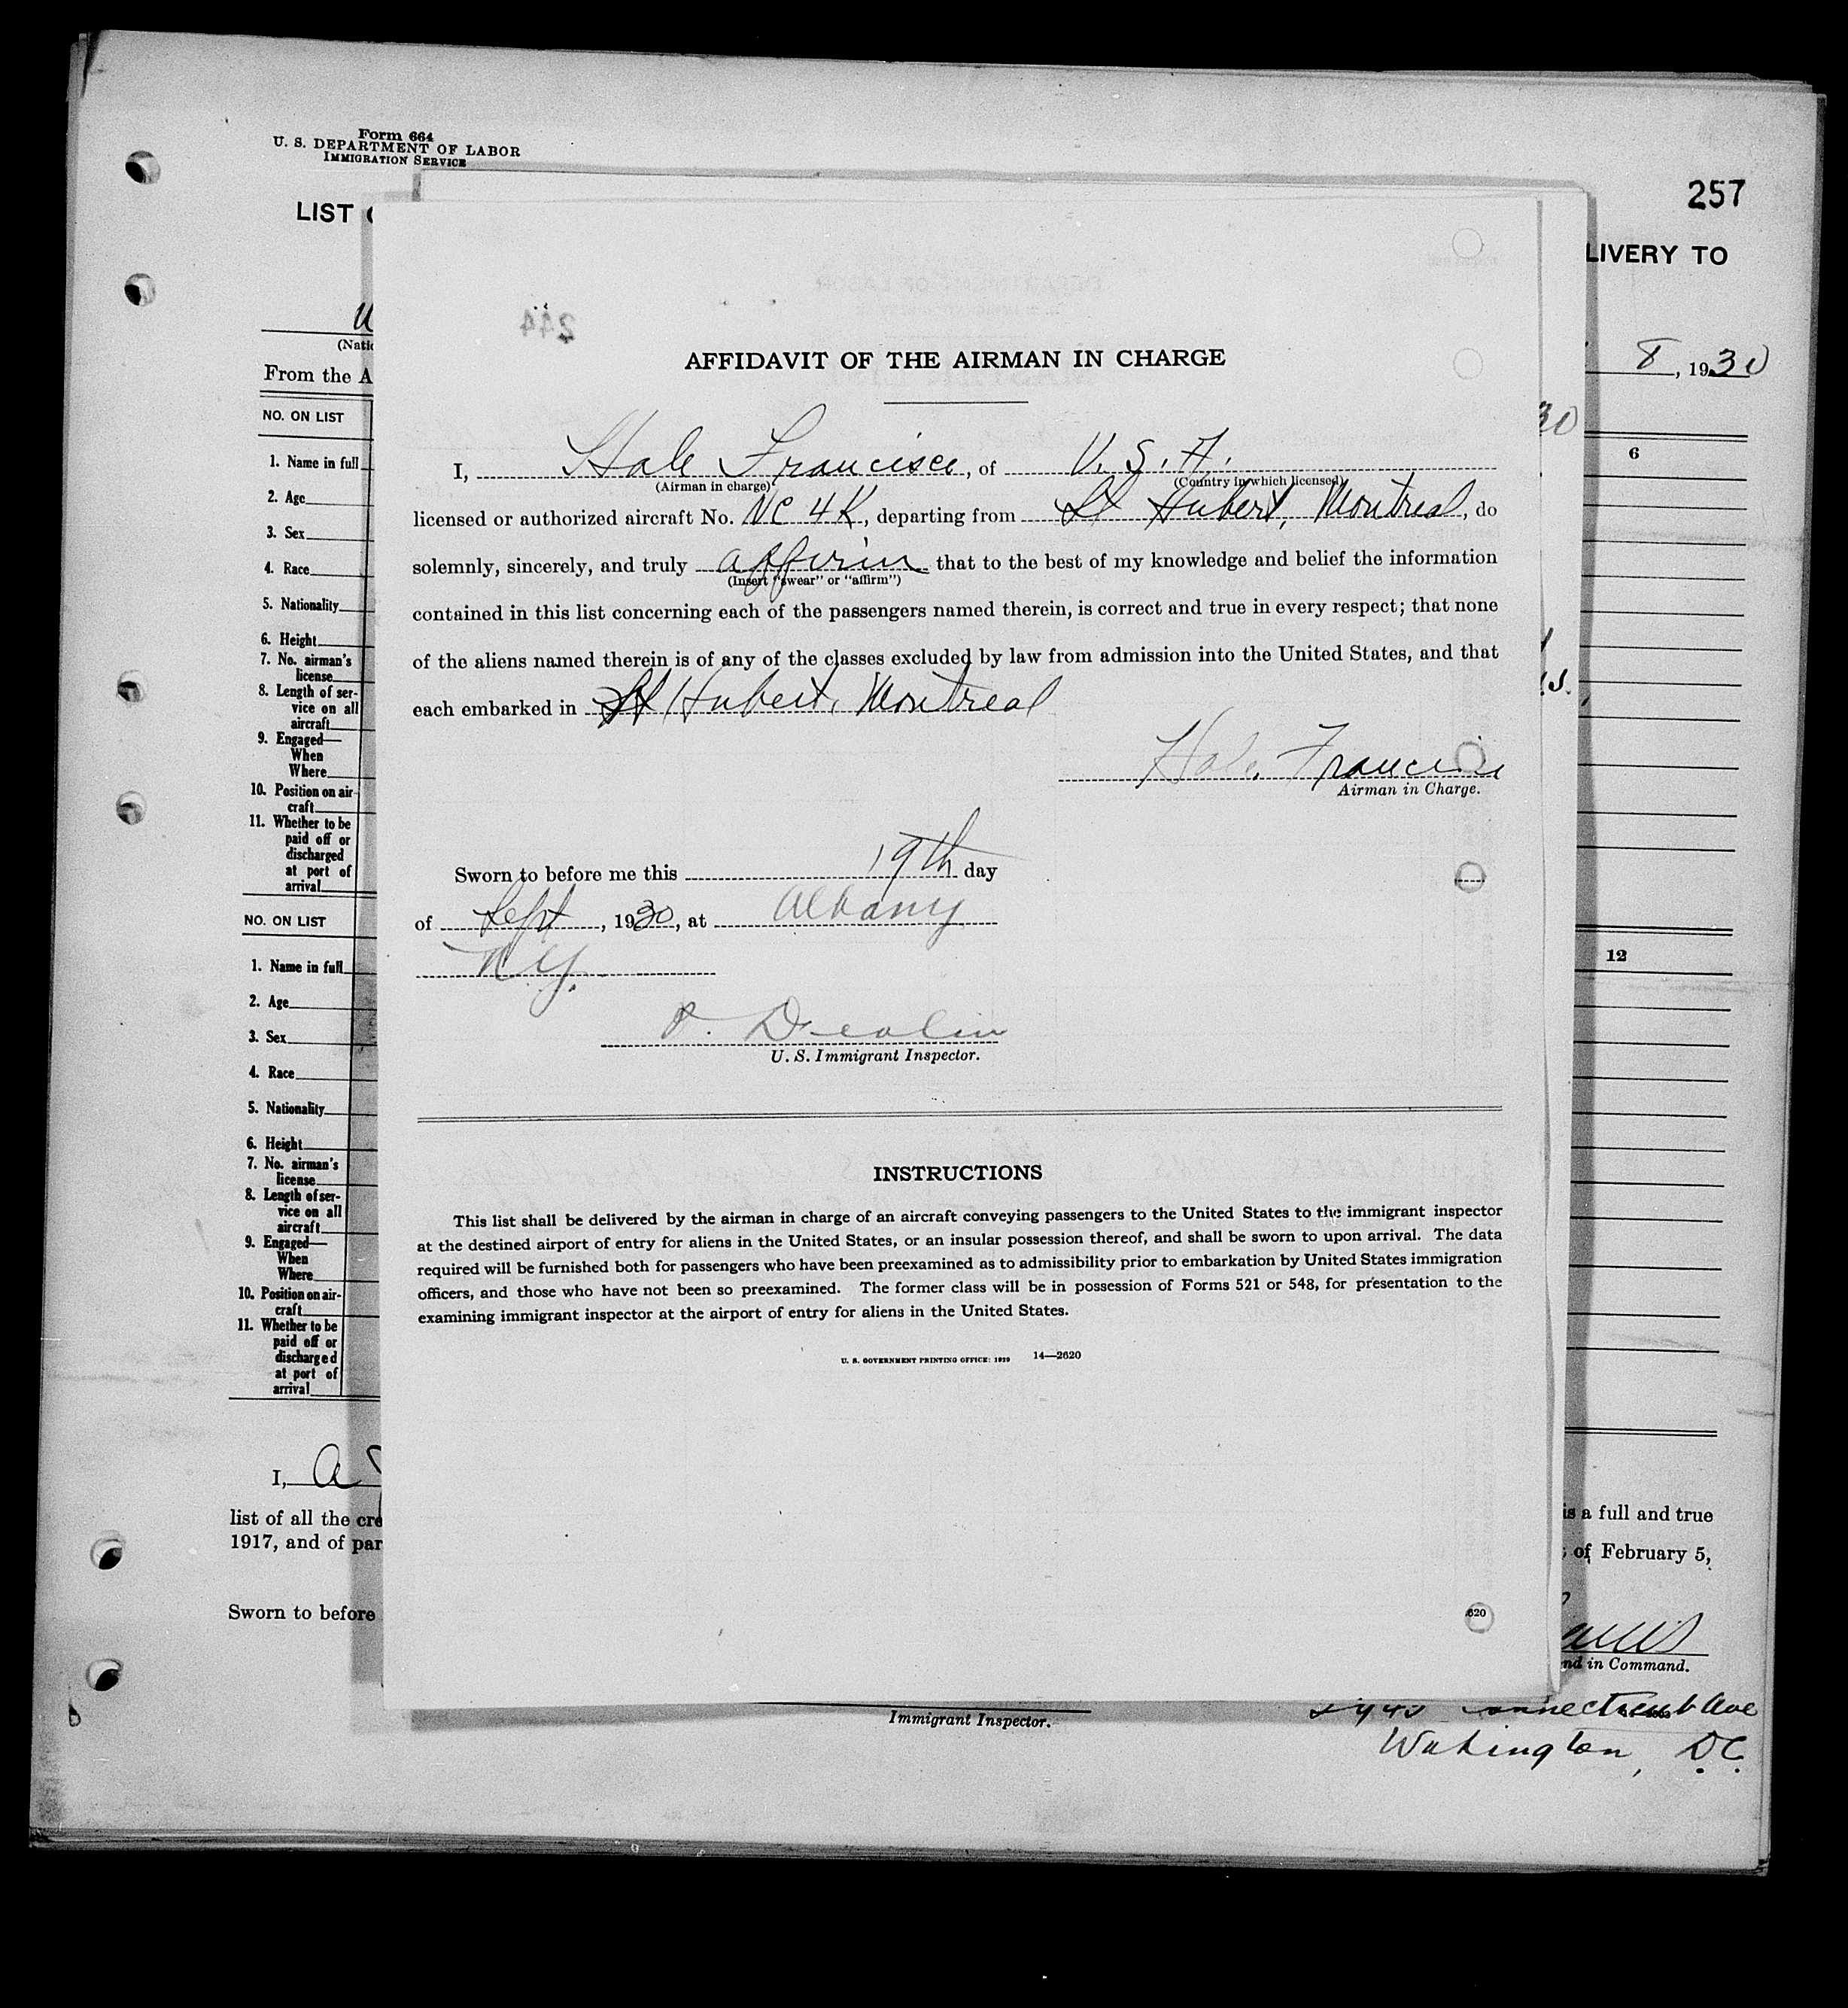 Form 664
U. S. DEPARTMENT OF LABOR
IMMIGRATION SERVICE
257
LIST
LIVERY TO
(Nati
From the A
8, 1930
30
NO. ON LIST
6
1. Name in full
2. Age
3. Sex
4. Race
5. Nationality
6. Height
7. No. airman's
license
8. Length of ser-
vice on all
aircraft
9. Engaged—
When
Where
10. Position on air-
craft
11. Whether to be
paid off or
discharged
at port of
arrival
NO. ON LIST
12
1. Name in full
2. Age
3. Sex
4. Race
5. Nationality
6. Height
7. No. airman's
license
8. Length of ser-
vice on all
aircraft
9. Engaged—
When
Where
10. Position on air-
craft
11. Whether to be
paid off or
discharged
at port of
arrival
I, A
list of all the cre
is a full and true
1917, and of par
of February 5,
Sworn to before
nd in Command.
Immigrant Inspector.
Connecticut Ave
Wahington, D.C.
244
AFFIDAVIT OF THE AIRMAN IN CHARGE
I, Hale Francisco, of U. S. A.
(Airman in charge) (Country in which licensed)
licensed or authorized aircraft No. NC 4K, departing from St Hubert, Montreal, do
solemnly, sincerely, and truly affirm that to the best of my knowledge and belief the information
(Insert "swear" or "affirm")
contained in this list concerning each of the passengers named therein, is correct and true in every respect; that none
of the aliens named therein is of any of the classes excluded by law from admission into the United States, and that
each embarked in St Hubert, Montreal
Hale Francisco
Airman in Charge.
Sworn to before me this 19th day
of Sept, 1930, at Albany
N.Y.
U. S. Immigrant Inspector.
INSTRUCTIONS
This list shall be delivered by the airman in charge of an aircraft conveying passengers to the United States to the immigrant inspector
at the destined airport of entry for aliens in the United States, or an insular possession thereof, and shall be sworn to upon arrival. The data
required will be furnished both for passengers who have been preexamined as to admissibility prior to embarkation by United States immigration
officers, and those who have not been so preexamined. The former class will be in possession of Forms 521 or 548, for presentation to the
examining immigrant inspector at the airport of entry for aliens in the United States.
U. S. GOVERNMENT PRINTING OFFICE: 1929 14—2620
620